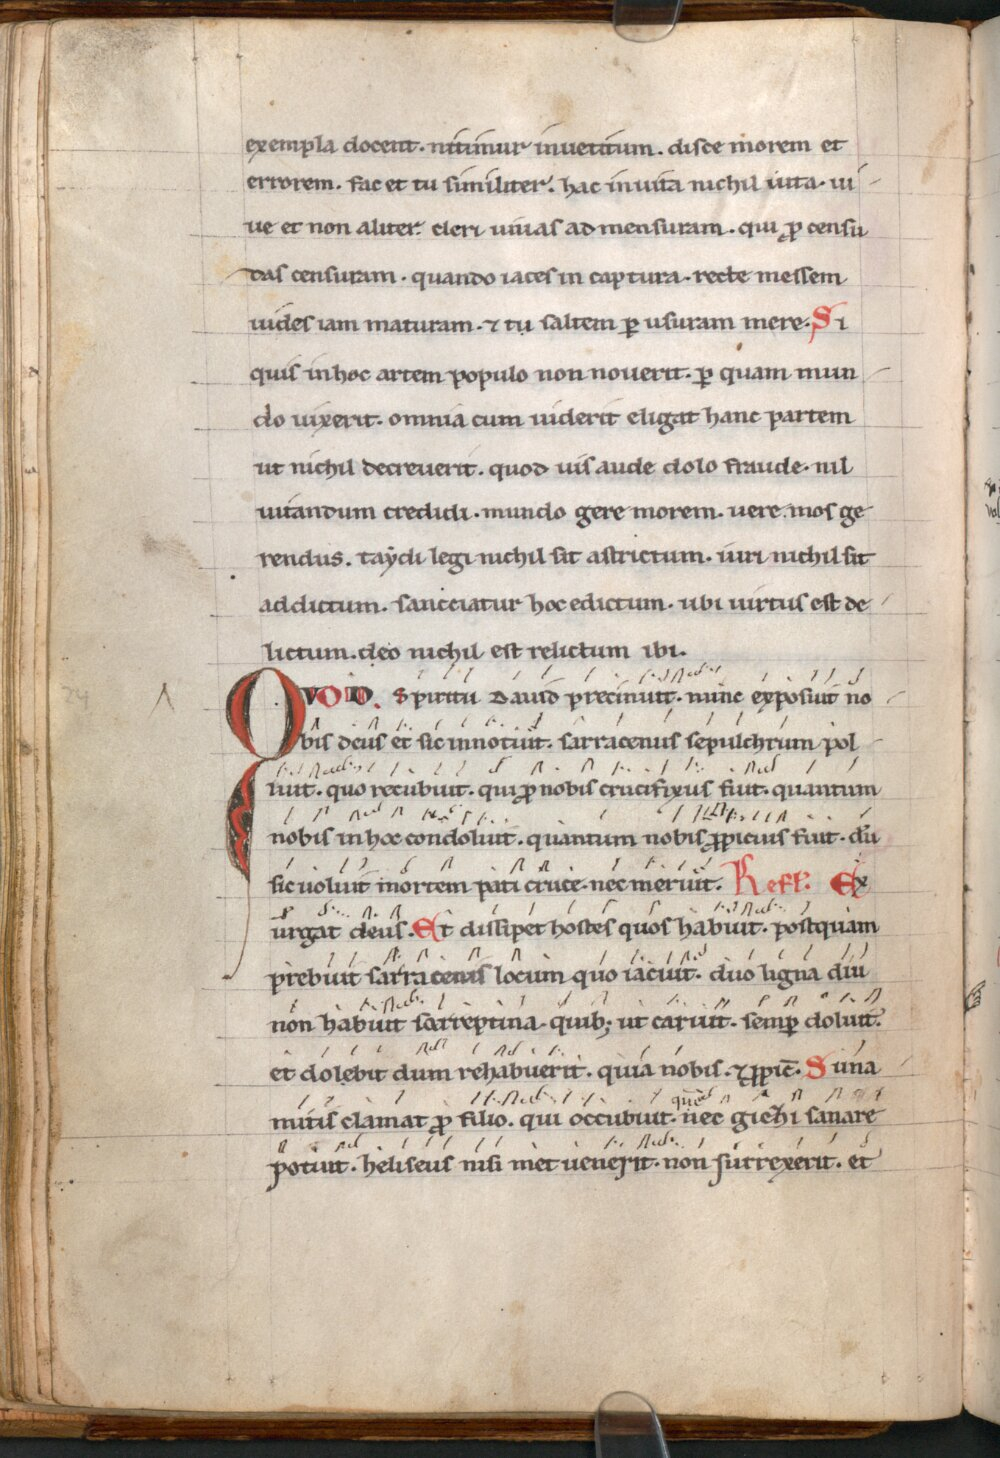 exempla docent. nitimur inuetitum. disce morem et
errorem. fac et tu similiter. hac inuita nichil iuta. ui
ue et non aliter. cleri uiuas ad mensuram. qui p censu
das censuram. quando iaces in captura. recte messem
uides iam maturam. ⁊ tu saltem p usuram mere. Si
quis inhoc artem populo non nouerit. p quam mun
do uixerit. omnia cum uiderit eligat hanc partem
ut nichil decreuerit. quod uis aude dolo fraude. nil
uitandum credidi. mundo gere morem. uere mos ge
rendus. taẏdi legi nichil sit astrictum. iuri nichil sit
addictum. sancciatur hoc edictum. ubi uirtus est de
lictum. deo nichil est relictum ibi.
QVOD Spiritu Dauid precinuit. nunc exposuit no
bis deus et sic innotuit. sarracenus sepulchrum pol
luit. quo recubuit. qui p nobis crucifixus fuit. quantum
nobis in hoc condoluit. quantum nobis ppicius fuit. dū
sic uoluit mortem pati cruce. nec meruit. Refl. Ex
urgat deus. Et dissipet hostes quos habuit. postquam
prebuit sarracenis locum quo iacuit. duo ligna diu
non habuit sarreptina. quib; ut caruit. semp doluit.
et dolebit dum rehabuerit. quia nobis. ⁊ ppic̄. Suna
mitis clamat p filio. qui occubuit. nec giezhi sanare
potuit. heliseus nisi met uenerit. non surrexerit. et